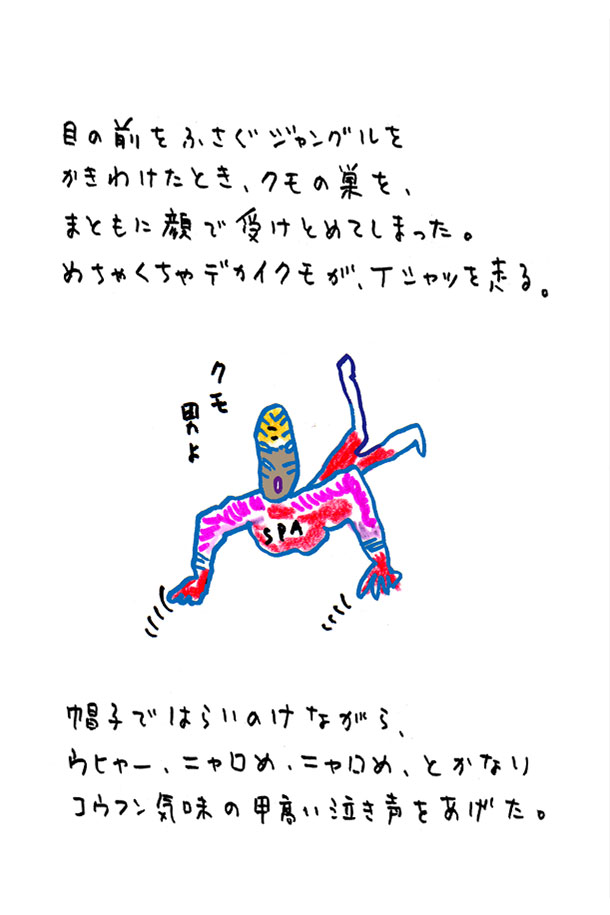 目の前をふさぐジャングルを
かきわけたとき、クモの巣を、
まともに顔で受けとめてしまった。
めちゃくちゃデカイクモが、Tシャツを走る。
クモ
男よ
SPA
帽子ではらいのけながら、
ウヒャー、ニャロめ、ニャロめ、とかなり
コウフン気味の甲高い泣き声をあげた。